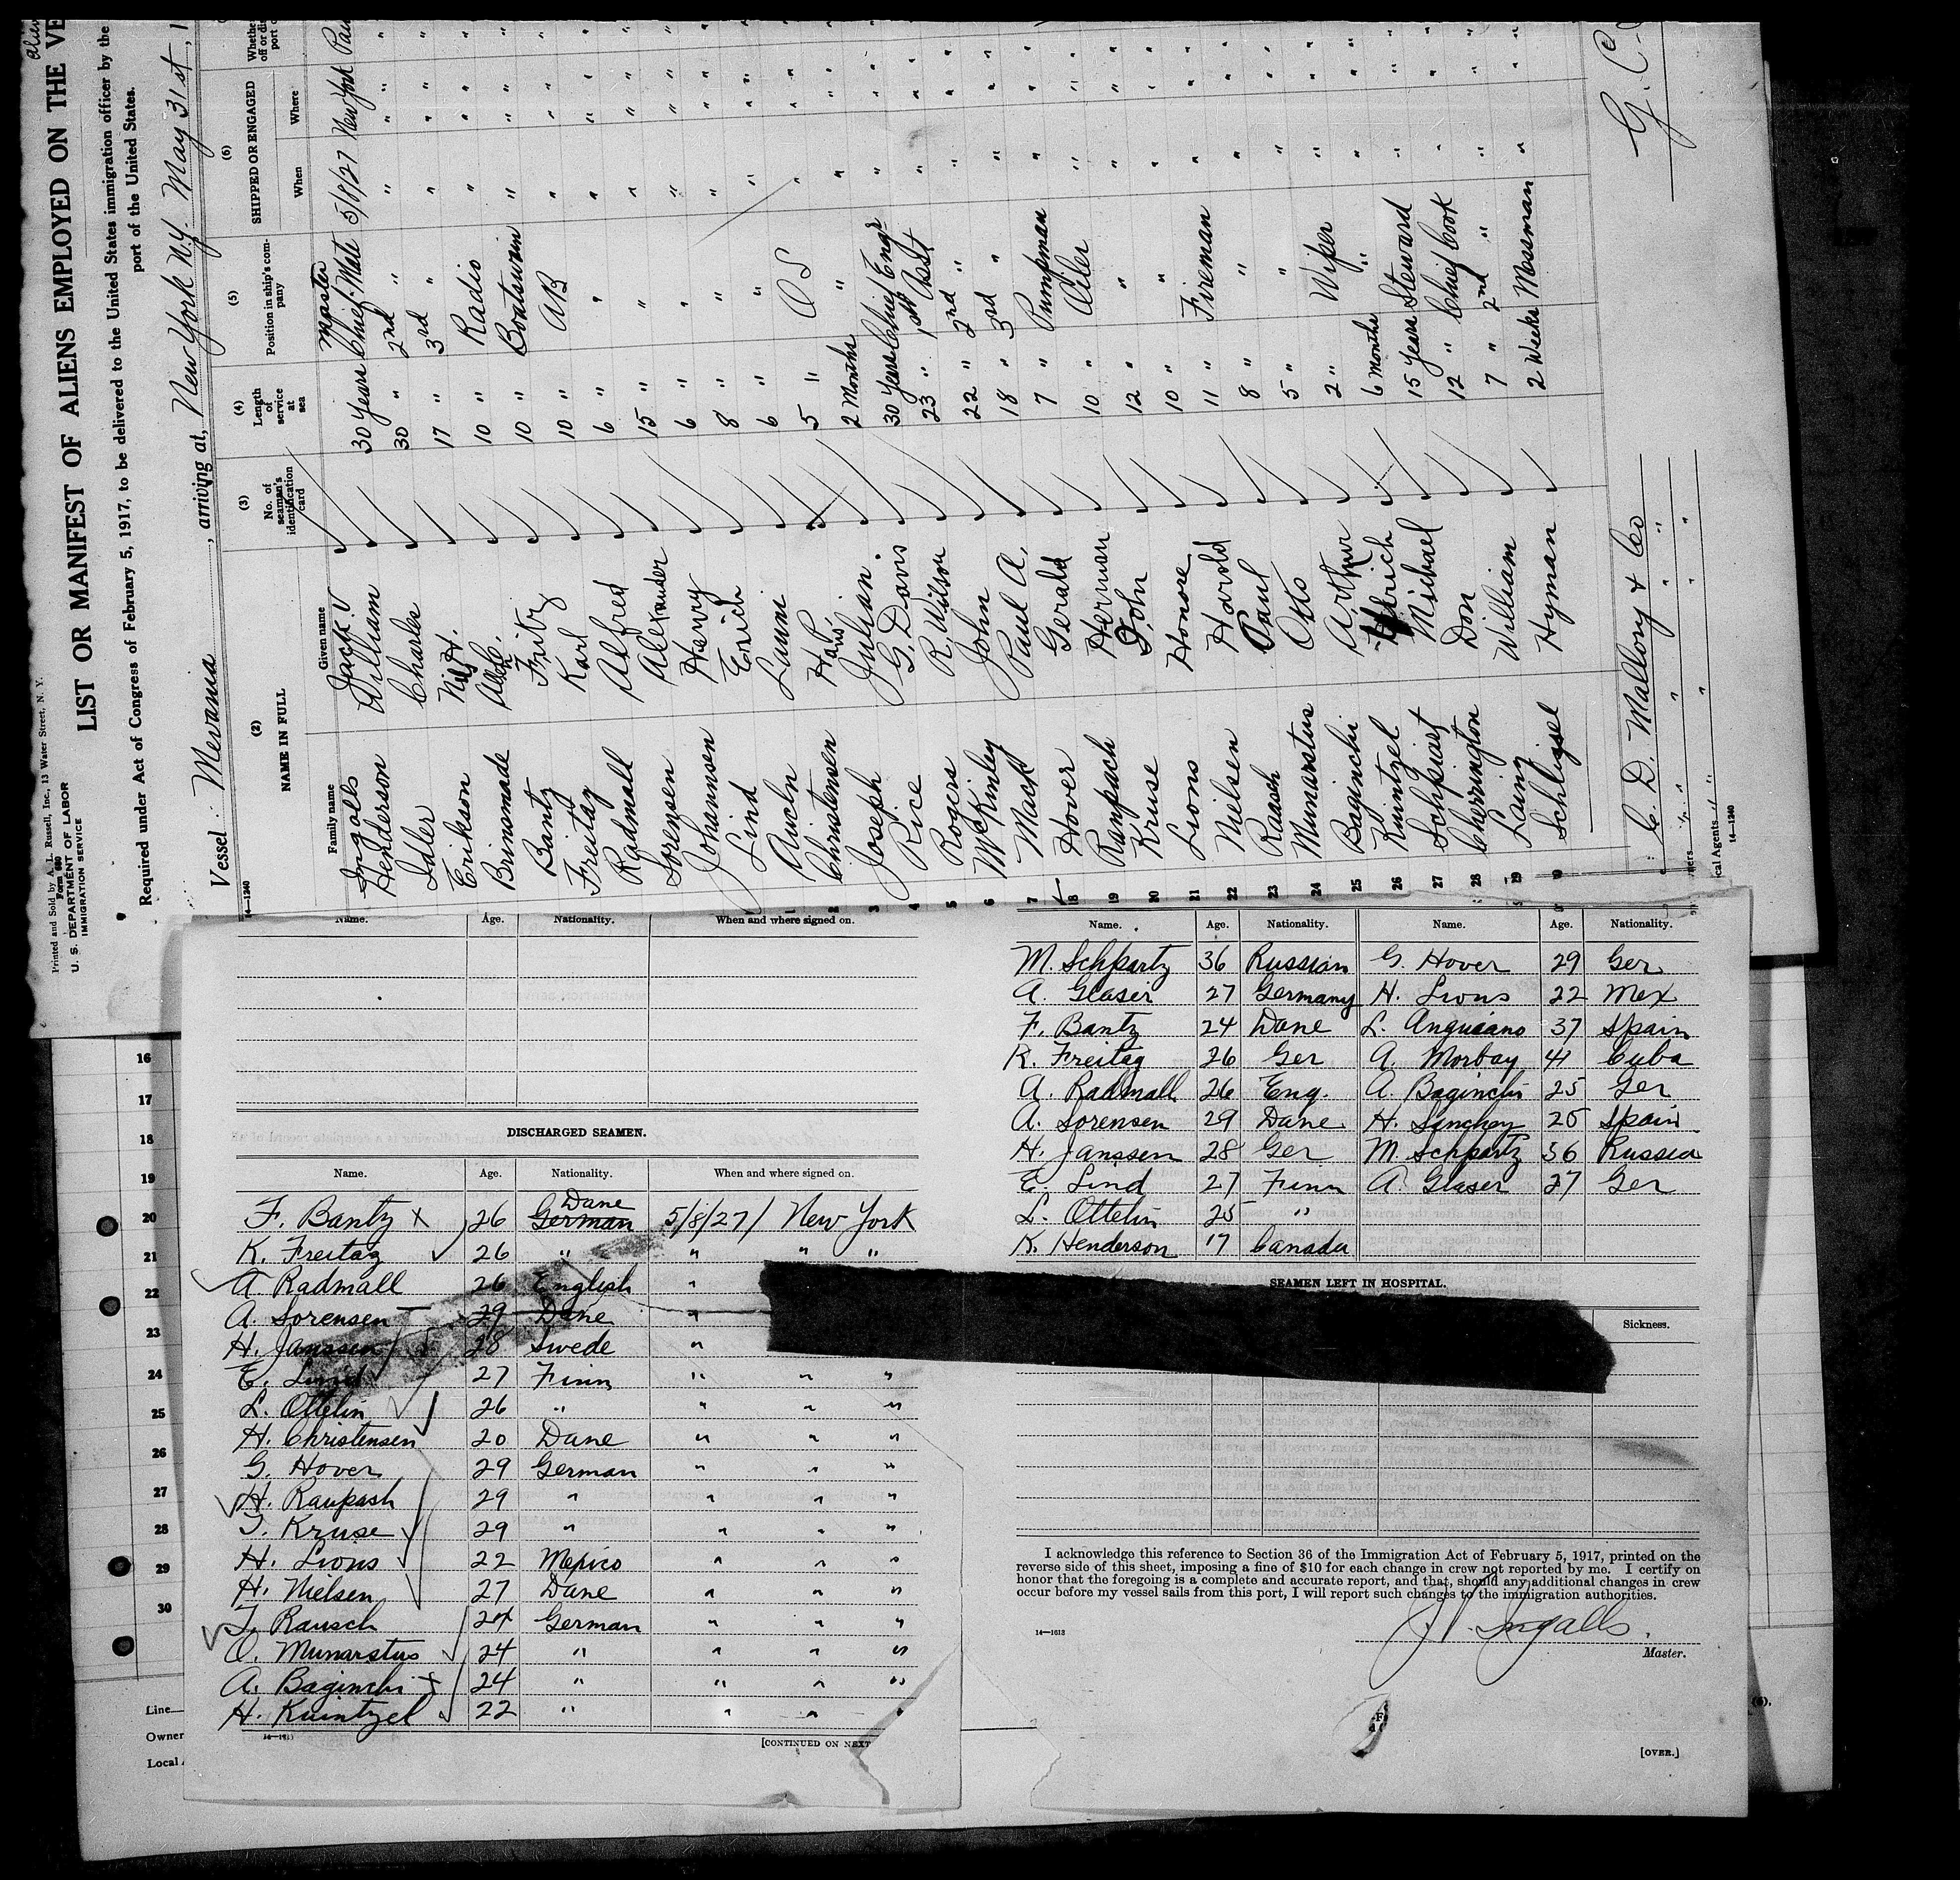 alien
Printed and Sold by A. L. Russell, Inc., 13 Water Street, N. Y.
U. S. DEPARTMENT OF LABOR
IMMIGRATION SERVICE
LIST OR MANIFEST OF ALIENS EMPLOYED ON THE VE
Required under Act of Congress of February 5, 1917, to be delivered to the United States immigration officer by the
port of the United States.
Vessel Mevania, arriving at, New York N.Y. May 31st, 1
14—1240
(2) (3) (4) (5) (6)
NAME IN FULL No. of seaman's identification card Length of service at sea Position in ship's company SHIPPED OR ENGAGED Whethe
Family name Given name When Where
Ingalls Jack V Master
Henderson William 30 years Chief Mate 5/8/27 New York
Idler Charles 30 " 2nd " " "
Erikson Nils H. 17 " 3rd " " "
Brinsmade 10 " Radio " "
Bantz Fritz 10 " Boatswain " "
Freitag Karl 10 " AB " "
Radmall Alfred 6 " " " "
Sorensen Alexander 15 " " " "
Johannsen Harry 6 " " " "
Lind Erich 8 " " " "
Lauri 6 " " " "
Christensen 5 " OS " "
Joseph Julian. 2 Months " " "
Rice G. Davis 30 years Chief Engr " "
Rogers R. Wilson 23 " 1st Asst " "
McKinley John 22 " 2nd " " "
Mack Paul A. 18 " 3rd " " "
Hover Gerald 7 " Pumpman " "
Raupach Herman 10 " Oiler " "
Kruse John 12 " " " "
Lions Honore 10 " " " "
Nielsen Harold 11 " Fireman " "
Raasch Paul 8 " " " "
Munarstus Otto 5 " " " "
Baginchi Arthur 2 " Wiper " "
Kuintzel 6 months " " "
Schpiart Michael 15 years Steward " "
Cherrington Don 12 " Chief Cook " "
Laing William 7 " 2nd " " "
Schlissel Hyman 2 Weeks Messman " "
C. D. Mallory & Co
cal Agents
14—1240
G. C.
Name. Age. Nationality. When and where signed on.
DISCHARGED SEAMEN.
Name. Age. Nationality. When and where signed on.
F. Bantz x 26 German Dane 5/8/27 New York
K. Freitag 26 " " " "
A. Radmall 26 English "
A. Sorensen 29 Dane "
H. Janssen 28 Swede "
E. Lind 27 Finn " " "
L. Ottelin 26 " " " "
H. Christensen 20 Dane " " "
G. Hover 29 German " " "
H. Raupash 29 " " " "
J. Kruse 29 " " " "
H. Lions 22 Mexico " " "
H. Nielsen 27 Dane " " "
Rausch 24 German " " "
O. Munarstus 24 " " " "
A. Baginchi x 24 " " " "
H. Kuintzel 22 " " " "
[CONTINUED ON NEXT
Name. Age. Nationality. Name. Age. Nationality.
M. Schpartz 36 Russian G. Hover 29 Ger
A. Glaser 27 Germany H. Lions 22 Mex
F. Bantz 24 Dane L. Anguiano 37 Spain
K. Freitag 26 Ger A. Morbay 41 Cuba
A. Radmall 26 Eng. A. Baginchi 25 Ger
A. Sorensen 29 Dane H. Sanchez 25 Spain
H. Janssen 28 Ger M. Schpartz 36 Russia
E. Lind 27 Finn A. Glaser 27 Ger
L. Ottelin 25 "
K. Henderson 17 Canada
SEAMEN LEFT IN HOSPITAL.
Sickness.
I acknowledge this reference to Section 36 of the Immigration Act of February 5, 1917, printed on the
reverse side of this sheet, imposing a fine of $10 for each change in crew not reported by me. I certify on
honor that the foregoing is a complete and accurate report, and that, should any additional changes in crew
occur before my vessel sails from this port, I will report such changes to the immigration authorities.
J V. Ingalls.
Master.
14—1613
[OVER.]
16
17
18
19
20
21
22
23
24
25
26
27
28
29
30
Line
Owner
Local
(6).